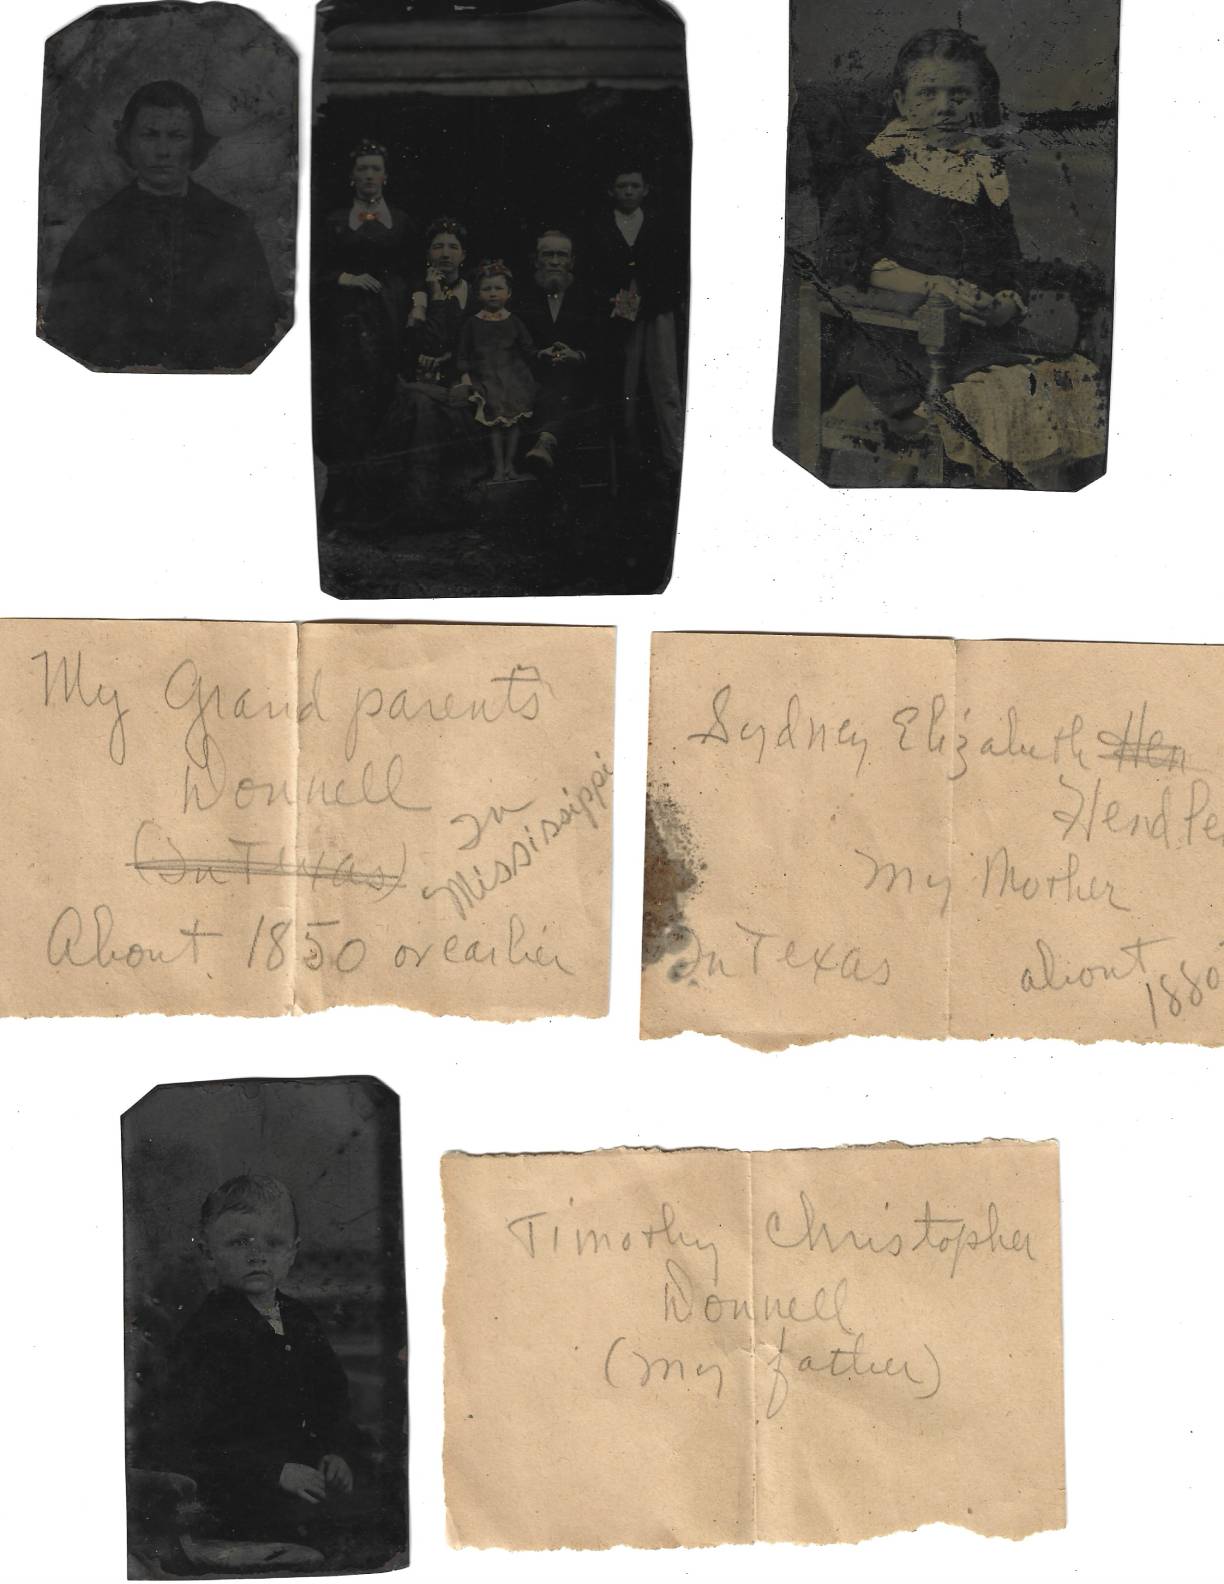 My Grand parents
Donnell
(In Texas)
In
Mississippi
About 1850 or earlier
Sydney Elizabeth Hen
Hendle
My Mother
In Texas
about
1880
Timothy Christopher
Donnell
(my father)